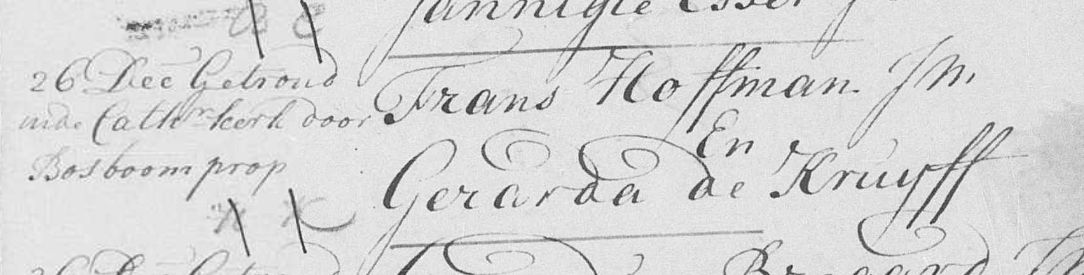 Jannigje Esser
26 Dec Getroud
inde Cathr kerk door
Bosboom prop
Frans Hoffman Jm.
En
Gerarda de Kruyff
26 Dec Getroud